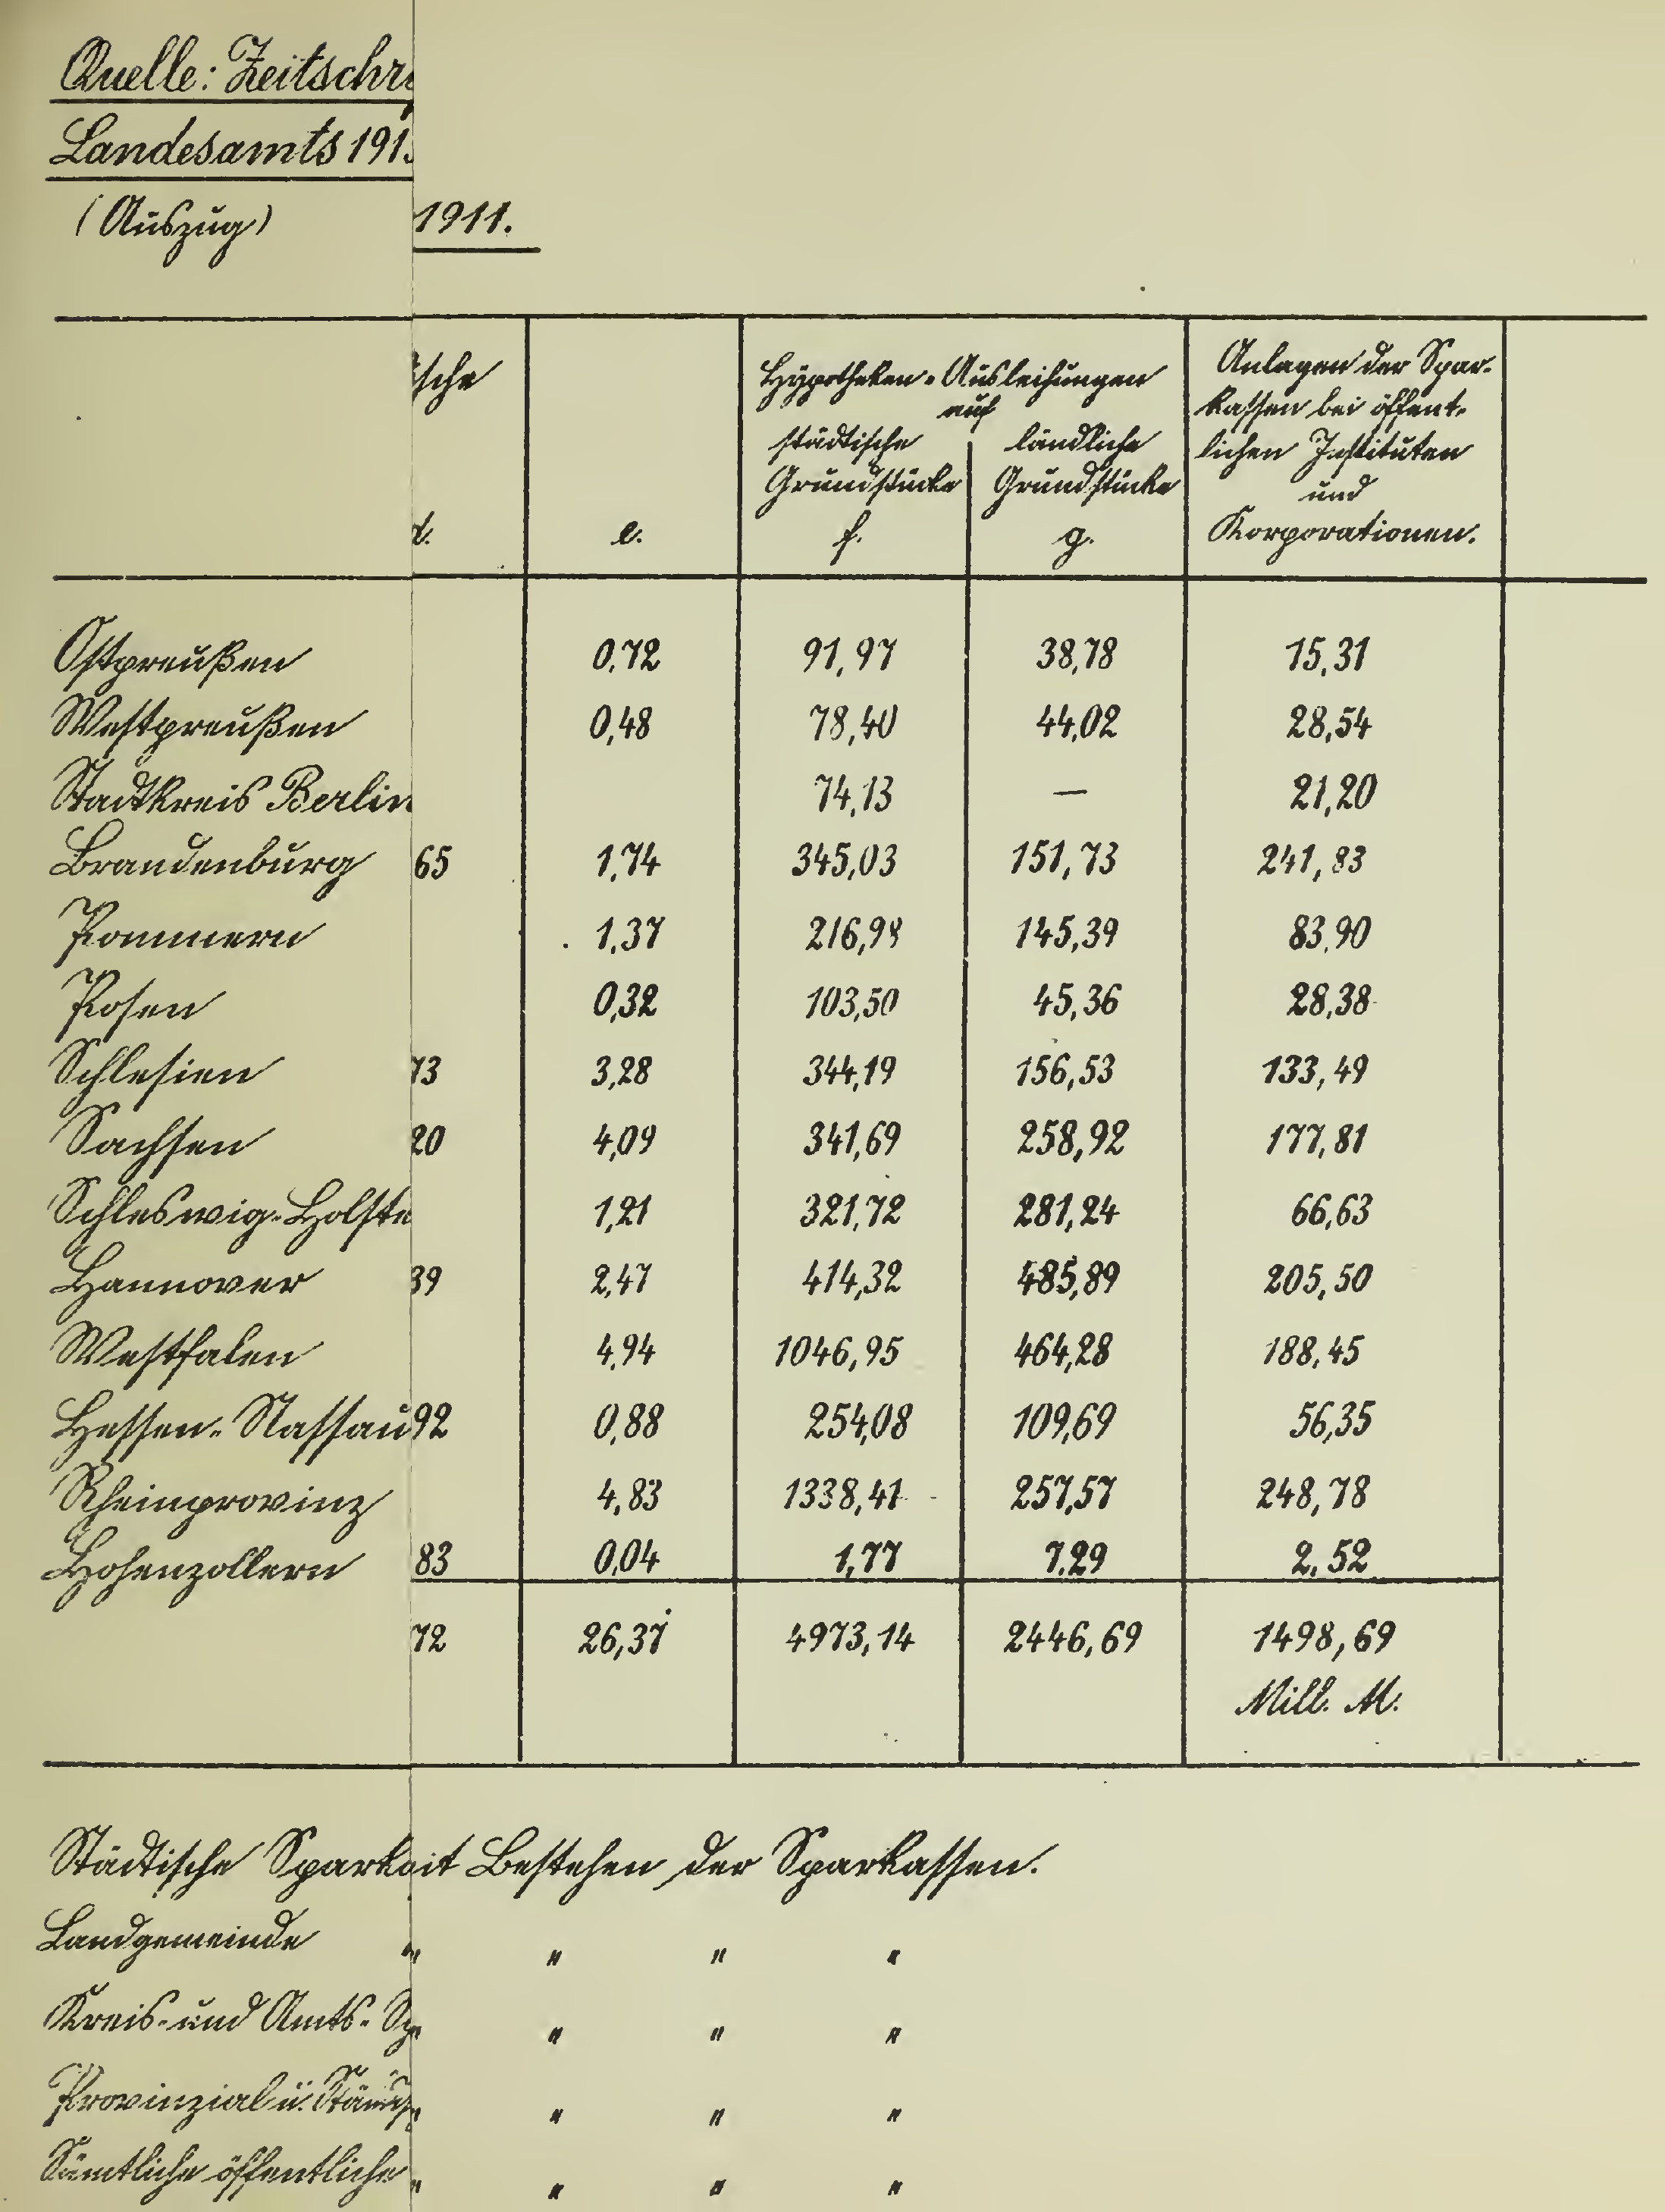 Quelle: Zeitschri
Landesamts 191
(Auszug) 1911.
ische
Hypotheken-Ausleihungen
auf
städtische Grundstücke
ländliche Grundstücke
Anlagen der Spar-
kassen bei öffent-
lichen Instituten
und
Korporationen.
d. e. f. g.
Ostpreußen 0,72 91,97 38,78 15,31
Westpreußen 0,48 78,40 44,02 28,54
Stadtkreis Berlin 74,13 — 21,20
Brandenburg 65 1,74 345,03 151,73 241,83
Pommern 1,37 216,98 145,39 83,90
Posen 0,32 103,50 45,36 28,38
Schlesien 73 3,28 344,19 156,53 133,49
Sachsen 20 4,09 341,69 258,92 177,81
Schleswig-Holste 1,21 321,72 281,24 66,63
Hannover 39 2,47 414,32 485,89 205,50
Westfalen 4,94 1046,95 464,28 188,45
Hessen-Nassau 92 0,88 254,08 109,69 56,35
Rheinprovinz 4,83 1338,41 257,57 248,78
Hohenzollern 83 0,04 1,77 7,29 2,52
72 26,37 4973,14 2446,69 1498,69
Mill. M.
Städtische Sparka eit Bestehen der Sparkassen.
Landgemeinde " " " "
Kreis- und Amts-Sp " " " "
Provinzial u. Ständ " " " "
Sämtliche öffentliche " " " "